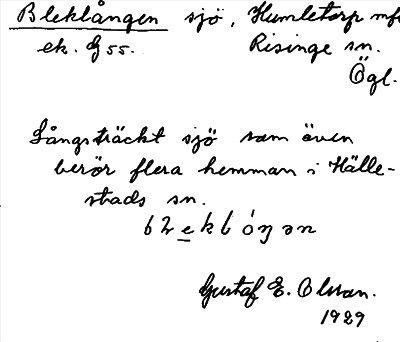 Bleklången sjö, Humletorp mfl
ek. G 55. Risinge sn.
Ögl.
Långsträckt sjö som även
berör flera hemman i Hälle-
stads sn.
Gustaf E. Olsson.
1929